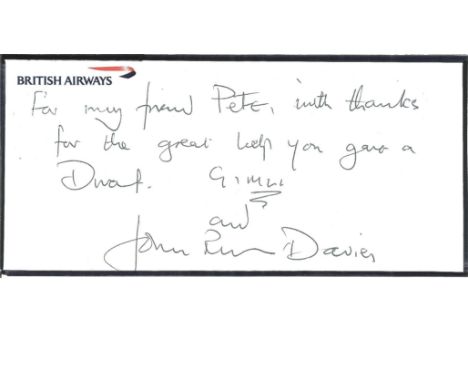 BRITISH AIRWAYS
For my friend Pete, with thanks
for the great help you gave a
Dwarf. Gimli
and
John Rhys Davies